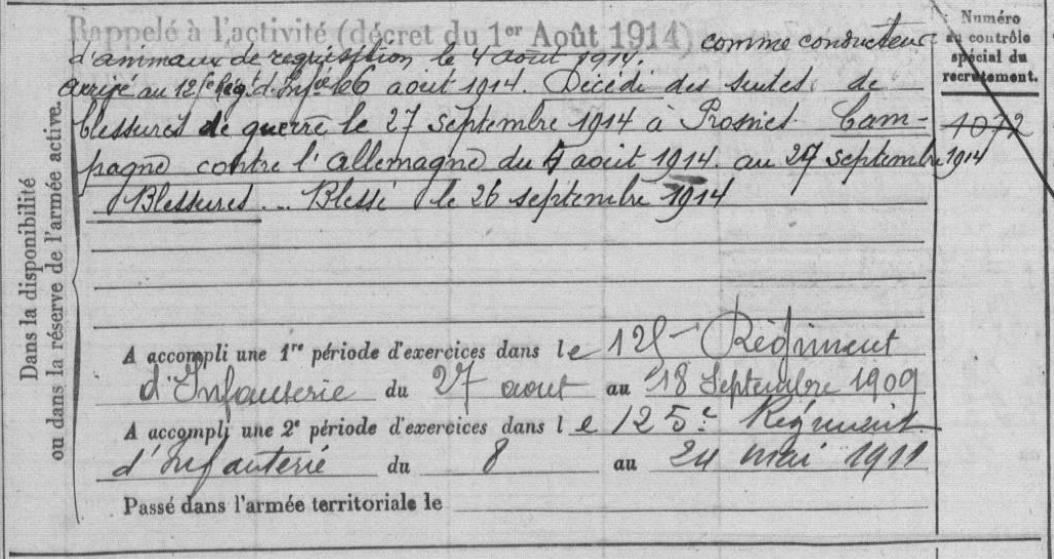 Rappelé à l'activité (décret du 1er Août 1914) comme conducteur
d'animaux de requisition le 4 août 1914.
arrivé au 125e Régt d'Infie le 6 août 1914. Décédé des suites de
blessures de guerre le 27 septembre 1914 à Prosnes. Cam-
pagne contre l'Allemagne du 4 août 1914 au 27 septembre 1914
Blessures... Blessé le 26 septembre 1914
A accompli une 1re période d'exercices dans le 125e Régiment
d'Infanterie du 27 aout au 18 Septembre 1909
A accompli une 2e période d'exercices dans le 125e Régiment
d'Infanterie du 8 au 24 mai 1911
Passé dans l'armée territoriale le
Dans la disponibilité
ou dans la réserve de l'armée active.
Numéro
au contrôle
spécial du
recrutement.
1072